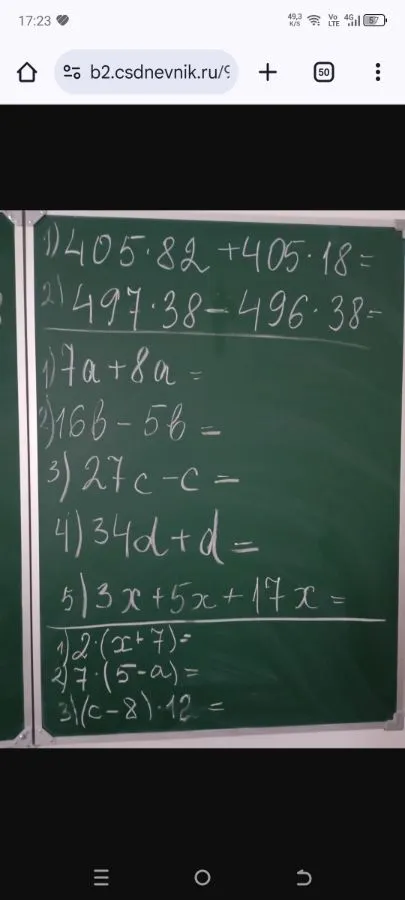 17:23
49,3 K/S Vo LTE 4G 57
b2.csdnevnik.ru/9 50
1) 405·82 + 405·18=
2) 497·38 - 496·38=
1) 7a+8a =
2) 16b - 5b =
3) 27c - c =
4) 34d + d =
5) 3x + 5x + 17x =
1) 2·(x+7)=
2) 7·(5-a)=
3) (c-8)·12 =